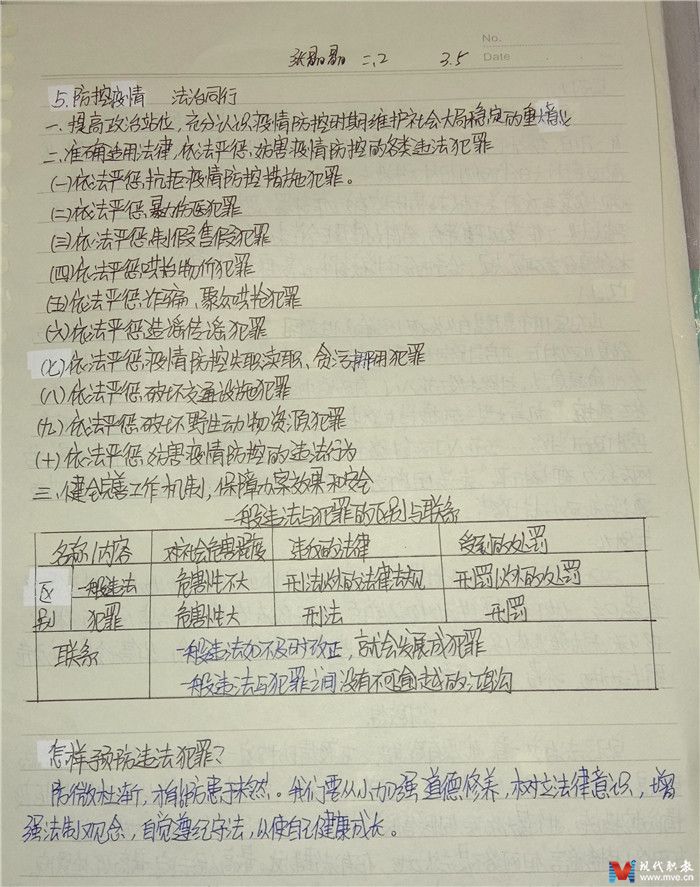 No.
Date
张勗勗 二、2 3.5
5.防控疫情 法治同行
一、提高政治站位,充分认识疫情防控时期维护社会大局稳定的重大意义
二、准确适用法律,依法严惩妨害疫情防控的各类违法犯罪
(一)依法严惩抗拒疫情防控措施犯罪。
(二)依法严惩暴力伤医犯罪
(三)依法严惩制假售假犯罪
(四)依法严惩哄抬物价犯罪
(五)依法严惩诈骗、聚众哄抢犯罪
(六)依法严惩造谣传谣犯罪
(七)依法严惩疫情防控失职渎职、贪污挪用犯罪
(八)依法严惩破坏交通设施犯罪
(九)依法严惩破坏野生动物资源犯罪
(十)依法严惩妨害疫情防控的违法行为
三、健全完善工作机制,保障办案效果和安全
一般违法与犯罪的区别与联系
名称/内容 对社会危害程度 违反的法律 受到的处罚
区别 一般违法 危害性不大 刑法以外的法律法规 刑罚以外的处罚
犯罪 危害性大 刑法 刑罚
联系 一般违法如不及时改正,就会发展成犯罪
一般违法与犯罪之间没有不可逾越的鸿沟
怎样预防违法犯罪?
防微杜渐,防患于未然。我们要从小加强道德修养,树立法律意识,增
强法制观念,自觉遵纪守法,以使自己健康成长。
现代职教
www.mve.cn